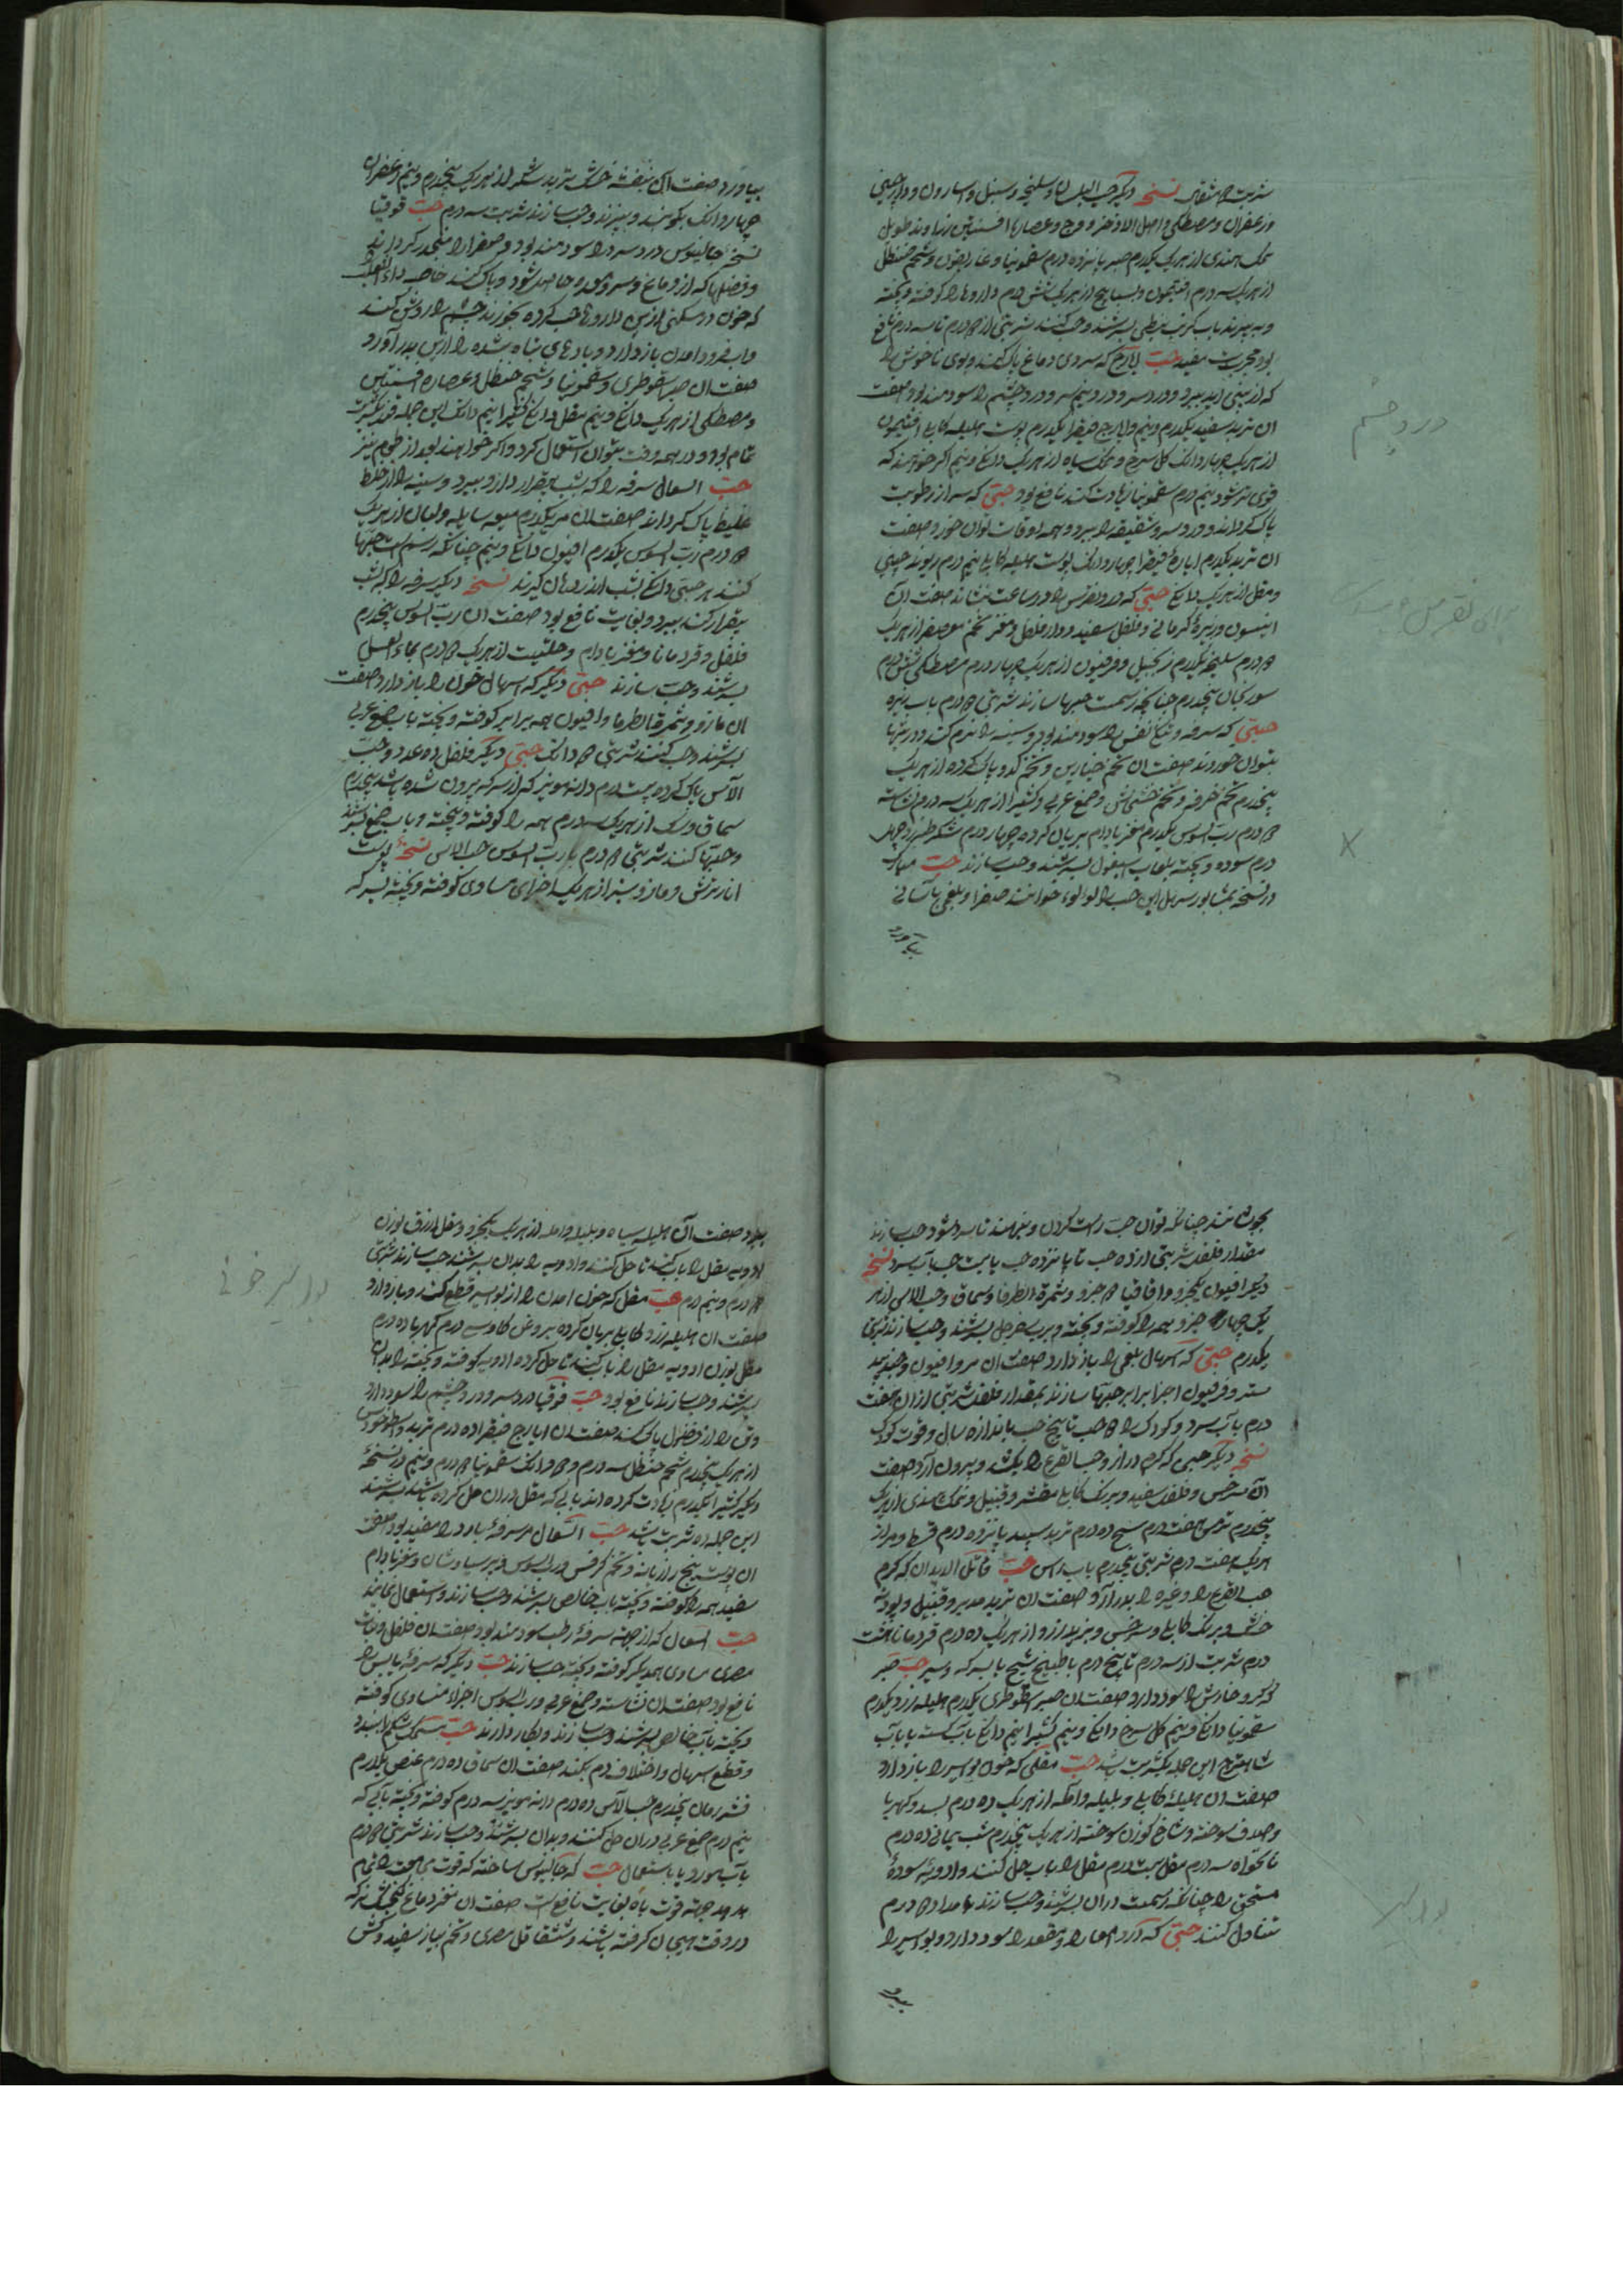 شربت ۲ مثقال نسخه دیگر حب البلسان و سلیخه و سنبل و اسارون و دارچینی
وزعفران و مصطکی و اصل الاذخر و وج و عصاره افسنتین زراوند طویل
نمک هندی از هر یک یکدرم صبر پانزده درم سقمونیا و غاریقون و شحم حنظل
از هر یک سه درم افتیمون و بسبایج از هر یک شش درم داروها را کوفته و بیخته
و به آب کرنب نبطی بسرشند و حب کنند شربتی از ۲ درم تا سه درم نافع
بود مجربست مفید حب ایارج که سر و دماغ پاک کند و بوی ناخوش را
که از بینی آید ببرد و درد سر و درد نیم سر و درد چشم را سودمند بود صفت
ان تربد سفید یکدرم و نیم و ایارج فیقرا یکدرم پوست هلیله کابلی افتیمون
از هر یک چهار دانگ گل سرخ و نمک سیاه از هر یک دانگ و نیم اگر خواهند که
قوی تر شود نیم درم سقمونیا زیادت کنند نافع بود حبی که سر از رطوبت
پاک گرداند و درد سر و شقیقه را ببرد و همه اوقات توان خورد صفت
ان تربد یکدرم ایاره فیقرا چهار دانگ پوست هلیله کابلی نیم درم ریوند چینی
و مقل از هر یک دانگ حبی که درد نقرس را در ساعت بنشاند صفت آن
انیسون و زیره کرمانی و فلفل سفید و دار فلفل و مغز تخم معصفر از هر یک
۲ درم سلیخه یکدرم زنجبیل و فرفیون از هر یک چهار درم مصطکی شش درم
سورنجان پنجدرم چنانچه رسمست حبها سازند شربتی ۲ درم باب زیره
حبی که سرفه و تنگی نفس را سودمند بود و سینه را نرم کند و در تبها
بتوان خورد صفت ان تخم خیارین و تخم کدو پاک کرده از هر یک
پنجدرم تخم خرفه و تخم خشخاش و صمغ عربی و کثیرا از هر یک سه درم نشاسته
۲ درم رب السوس یکدرم مغز بادام بریان کرده چهار درم شکر طبرزد چهل
درم سوده و بیخته بلعاب اسپغول بسرشند و حب سازند حب مبارک
در نسخه نیشابور سهل این حب را لولوء خوانند صفرا و بلغم باسانی
بیاورد
درد چشم
برای نقرس
X
بیاورد صفت ان بنفشه خشک تربد شکر از هر یک پنجدرم و نیم زعفران
چهار دانگ بکوبند و ببیزند و حب سازند شربت سه درم حب قوقیا
نسخه جالینوس درد سر را سودمند بود و صفرا را منحدر گرداند
و فضلها که از دماغ و سر و معده حاصل شود و پاک کند خاصه داء الثعلب
که خون در سکنی ازین داروها حب کرده بخورند چشم را روشن کند
و اب فرود امدن باز دارد و بادهای تباه شده را از تن بدر آورد
صفت ان صبر سقوطری و سقمونیا و شحم حنظل و عصاره افسنتین
و مصطکی از هر یک دانگ و نیم مقل دانگ کثیرا نیم دانگ این جمله قدر یکشربت
تمام بود و در همه وقت بتوان استعمال کرد و اگر خواهند بعد از طعام نیز
حب السعال سرفه را که شب بیقرار دارد ببرد و سینه را از خلط
غلیظ پاک گرداند صفت ان مر یکدرم میعه سایله و لبان از هر یک
۲ درم رب السوس یکدرم افیون دانگ و نیم چنانکه رسم است حبها
کنند هر حبی دانگ شب اندر دهان گیرند نسخه دیگر سرفه را که شب
بیقرار کند ببرد و بغایت نافع بود صفت ان رب السوس پنجدرم
فلفل و قردمانا و مغز بادام و حلتیت از هر یک ۲ درم بماء العسل
بسرشند و حب سازند حبی دیگر که اسهال خون را باز دارد صفت
ان مازو و ثمرة الطرفا و افیون همه برابر کوفته و بیخته باب صمغ عربی
بسرشند و حب کنند شربتی ۲ دانگ حبی دیگر فلفل ده عدد و حب
الآس پاک کرده بیست درم دانه مویز که از سرکه بیرون شده باشد پنجدرم
سماق و سک از هر یک سه درم همه را کوفته و بیخته و باب صمغ بسرشند
و حبها کنند شربتی ۲ درم با رب السوس حب الاس نسخهٔ پوست
انار ترش و مازو سبز از هر یک اجزای مساوی کوفته و بیخته بسرکه
بجوشانند چنانکه توان حب راست کردن و بنهند تا سرد شود حب سازند
مقدار فلفل شربتی از ده حب تا پانزده حب یا بیست حب بآب سرد نسخه
دیگر افیون یکجزو و اقاقیا ۲ جزو و ثمرة الطرفا و سماق و حب الاس از هر
یک چهار جزو همه را کوفته و بیخته و برب سفرجل بسرشند و حب سازند شربتی
یکدرم حبی که اسهال بلغمی را باز دارد صفت ان مر و افیون و جند بید
ستر و فرفیون اجزا برابر حبها سازند بمقدار فلفل شربتی از ان هفت
درم بآب سرد و کودک را ۲ حب تا پنج حب باندازه سال و قوت کودک
نسخه دیگر حبی که کرم دراز و حب القرع را بکشد و بیرون آرد صفت
آن سرخس و فلفل سفید و برنگ کابلی مقشر و قنبیل و نمک هندی از هر یک
پنجدرم ترمس هفت درم شیح ده درم تربد سپید پانزده درم قسط و مر از
هر یک هفت درم شربتی پنجدرم باب راسن حب قاتل الدیدان که کرم
حب القرع را و غیره را بدر آرد صفت ان تربد مدبر و قنبیل و پودنه
خشک و برنگ کابلی و سرخس و از هر یک ده درم قردمانا هشت
درم شربت از سه درم تا پنج درم با طبیخ شیح یا بسرکه و سیر حب صبر
که گر و خارش را سود دارد صفت ان صبر اسقوطری یکدرم هلیله زرد یکدرم
سقمونیا دانگ و نیم گل سرخ دانگ و نیم کثیرا نیم دانگ بآب کسنه یا باب
شاهترج این جمله یکشربت باشد حب مقلی که خون بواسیر را باز دارد
صفت ان هلیله کابلی و بلیله و آمله از هر یک ده درم بسد و کهربا
و صدف سوخته و شاخ گوزن سوخته از هر یک پنجدرم شب یمانی ده درم
نانخواه سه درم مقل بیست درم مقل را باب حل کنند و ادویه سوده
منخول را چنانکه رسمست دران بسرشند و حب سازند بامداد ۲ درم
تناول کنند حبی که درد امعا را و مقعد را سود دارد و بواسیر را
ببرد
بواسیر
ببرد صفت آن هلیله سیاه و بلیله و امله از هر یک یکجزو و مقل ازرق بوزن
ادویه مقل را باب کنند تا حل کنند و ادویه را بدان بسرشند حب سازند شربتی
۲ درم و نیم درم حب مقل که خون امدن را از بواسیر قطع کند و باز دارد
صفت ان هلیله زرد و کابلی بریان کرده بروغن گاو سی درم کهربا ده درم
مقل بوزن ادویه مقل را باب کنند تا حل کرده ادویه کوفته و بیخته را بدان
بسرشند و حب سازند نافع بود حب قوقیا درد سر و درد چشم را سود دارد
و تن را از فضول پاک کند صفت ان ایارج فیقرا ده درم تربد و اسطوخودوس
از هر یک پنجدرم شحم حنظل سه درم و ۲ دانگ سقمونیا ۲ درم و نیم در نسخهٔ
دیگر کثیرا یکدرم زیادت کرده اند بابی که مقل دران حل کرده باشند بسرشند
این جمله ده شربت باشد حب السعال سرفهٔ بارد را مفید بود صفت
ان پوست بیخ رازیانه و تخم کرفس و رب السوس و پرسیاوشان و مغز بادام
سفید همه را کوفته و بیخته باب خالص بسرشند و حب سازند و استعمال نمایند
حب السعال که از جهته سرفهٔ رطب سودمند بود صفت ان فلفل و نبات
مصری مساوی همدیگر کوفته و بیخته حب سازند حب دیگر که سرفهٔ یابس را
نافع بود صفت ان نشاسته و صمغ عربی و رب السوس اجزاء متساوی کوفته
و بیخته بآب خالص بسرشند و حب سازند و بکار دارند حب ممسک شکم را ببندد
و قطع اسهال و اختلاف دم بکند صفت ان سماق ده درم عفص یکدرم
قشر رمان پنجدرم حب الآس ده درم دانه مویز سه درم کوفته و بیخته بابی که
نیم درم صمغ عربی دران حل کنند و بدان بسرشند و حب سازند شربتی ۲ درم
بآب مورد یا باستعمال حب که جالینوس ساخته که قوت مجامعت را تمام
دهد و جهته قوت باه بغایت نافعست صفت ان مغز دماغ گنجشک نر که
در وقت هیجان گرفته باشند و شقاقل مصری و تخم پیاز سفید و کش
بواسیر خونی